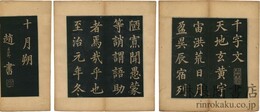 千字文
天地玄黃宇
宙洪荒日月
盈昃辰宿列
陋寡聞愚蒙
等誚謂語助
者焉哉乎也
至治元年冬
十月朔
趙書
rinrokaku.co.jp/